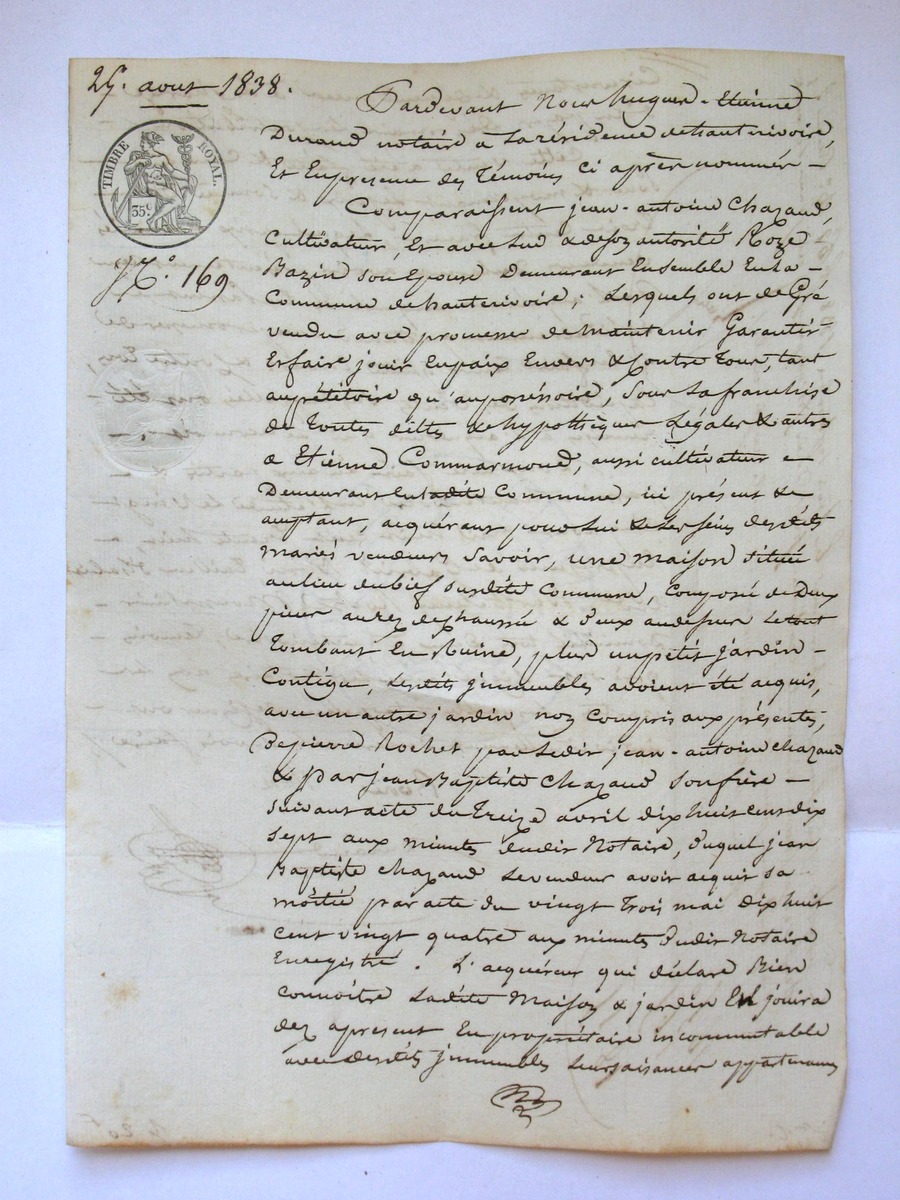 25. aout 1838.
TIMBRE ROYAL.
35c
No. 169
Pardevant Nous hugues-Etienne
Durand notaire a la résidence de hauterivoire,
Et En presence des Témoins ci après nommés -
Comparaissent jean-antoine Chazaud,
Cultivateur, Et avec lui & de son autorité Roze
Bazin son Epouse Demeurant Ensemble En la -
Commune de hauterivoire; Lesquels ont de Gré
vendu avec promesse de maintenir Garantir
Et faire jouir En paix Envers & Contre Tous, tant
au pétitoire qu'au possessoire, Sous La franchise
de Toutes dettes & hypothèques Légales & autres
a Etienne Commarmond, aussi cultivateur
Demeurant En ladite Commune, ici présent &
acceptant, acquérant pour Lui & Les siens desdits
mariés vendeurs Savoir, une maison située
au lieu du bief susdite Commune, Composée de Deux
pièces au rez de chaussée & deux au dessus Le tout
Tombant En Ruine, plus un petit jardin -
Contigu, Lesdits jmmeubles avoient été acquis,
avec un autre jardin non Compris aux présentes,
De pierre Rochet par Ledit jean-antoine chazaud
& par jean Baptiste Chazaud son frère -
suivant acte du Treize avril dix huit cent dix
sept aux minutes dudit Notaire, duquel jean
Baptiste chazaud Le vendeur avoit acquit sa
moitié par acte du vingt Trois mai dix huit
cent vingt quatre aux minutes dudit Notaire
Enregistré. L'acquéreur qui déclare Bien
connoitre Ladite Maison & jardin En jouira
dez apresent En propriétaire incommutable
avec desdits jmmeubles Leurs aisances appartenances